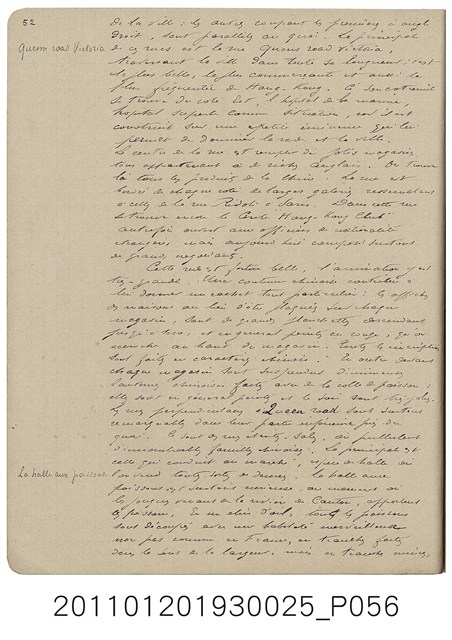 52
de la ville; les autres coupant les premières à angle
droit, sont parallèles au quai. La principale
Queens road Victoria
de ces rues est la rue Queens road Victoria,
traversant la ville dans toute sa longueur; c'est
la plus belle, la plus commerçante et aussi la
plus fréquentée de Hong-Kong. À son extrémité
se trouve du côté Est, l'hôpital de la marine,
hôpital superbe comme situation, car il est
construit sur une petite éminence qui lui
permet de dominer la rade et la ville.
Le centre de la rue est rempli de jolis magasins
tous appartenant à de riches Anglais. On trouve
là tous les produits de la Chine. La rue est
bordée de chaque côté de larges galeries ressemblant
à celles de la rue Rivoli à Paris. Dans cette rue
se trouve encore le Cercle Hong-Kong Club
autrefois ouvert aux officiers de nationalité
étrangère, mais aujourd'hui composé surtout
de grands négociants.
Cette rue est fort belle, l'animation y est
très grande. Une coutume chinoise contribue à
lui donner un cachet tout particulier: les affiches
des maisons au lieu d'être plaquées sur chaque
magasin, sont de grandes planchettes descendant
jusqu'à terre, et en général peintes en rouge, qu'on
accroche au haut du magasin. Toutes les inscriptions
sont faites en caractères chinois. En outre devant
chaque magasin sont suspendues d'immenses
lanternes chinoises faites avec de la colle de poisson;
elles sont en général peintes et le soir sont
Les rues perpendiculaires à Queen road sont surtout
remarquables dans leur partie inférieure près du
quai. Ce sont des rues étroites, sales, où pullulent
d'innombrables familles chinoises. La principale est
celle qui conduit au marché, espèce de halle où
l'on vend toutes sortes de denrées. La halle aux
La halle aux poissons
poissons est curieuse au moment où
les jonques venant de la rivière de Canton, apportent
les poissons. En un clin d'œil, tous les poissons
sont découpés avec une habileté merveilleuse
non pas comme en France, en tranches faites
dans le sens de la largeur, mais en tranches minces,
201101201930025_P056